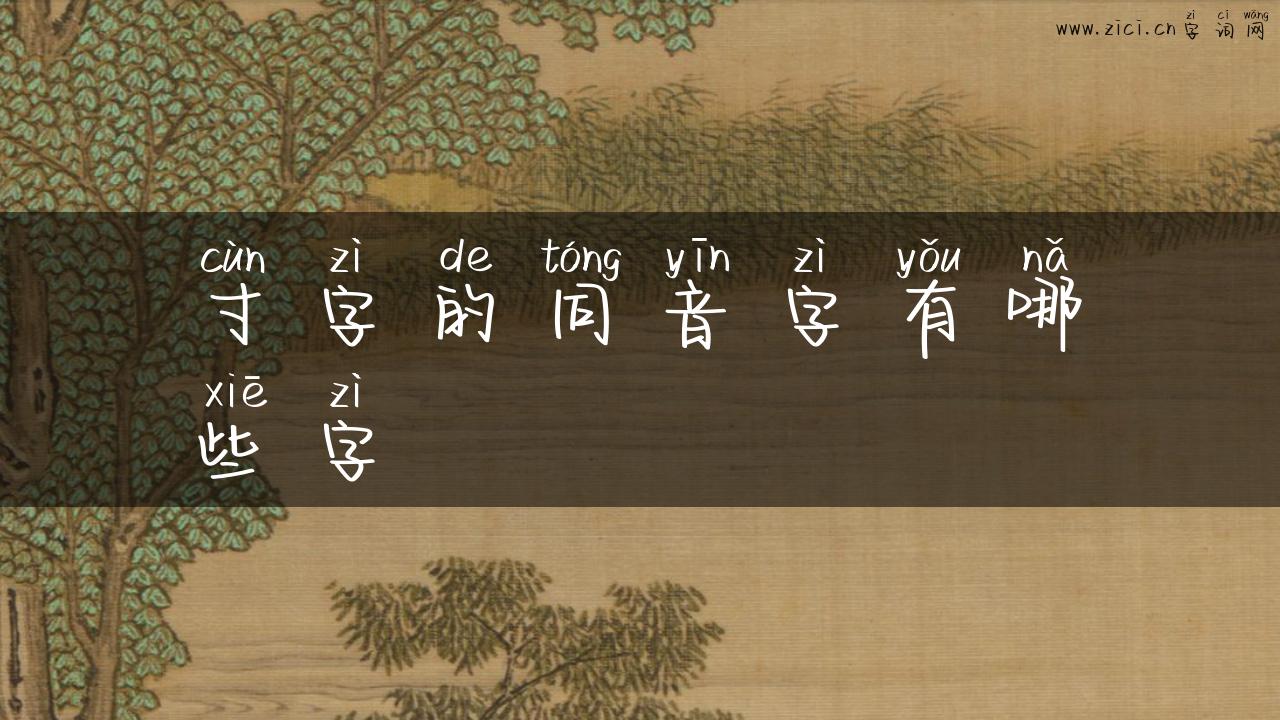 zì cí wǎng
www.zici.cn 字 词 网
cùn zì de tóng yīn zì yǒu nǎ
寸 字 的 同 音 字 有 哪
xiē zì
些 字